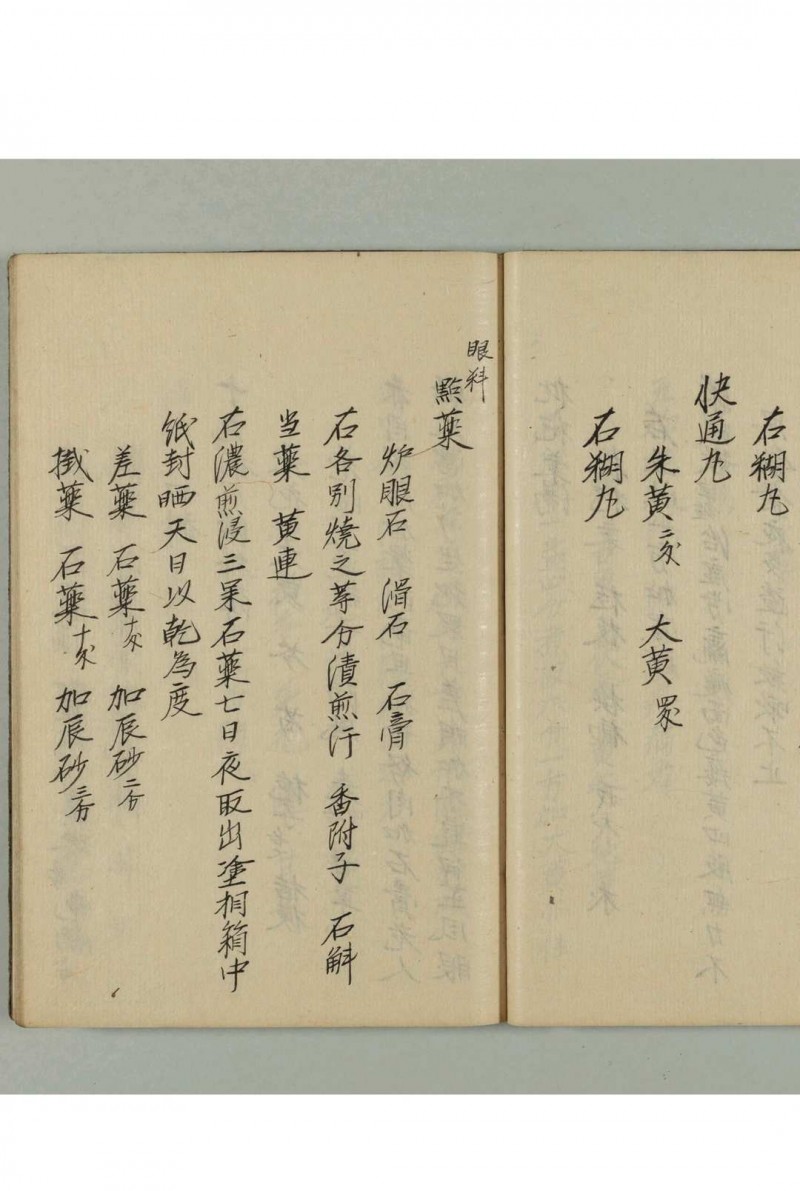 右糊丸
快通丸
朱黄 二匁 大黄 四匁
右糊丸
眼料
點薬
炉眼石 滑石 石膏
右各別焼之等分漬煎汁 香附子 石斛
当薬 黄連
右濃煎浸三味石薬七日夜取出塗桐箱中
紙封晒天日以乾為度
差薬 石薬十匁 加辰砂二分
掛薬 石薬十匁 加辰砂三分